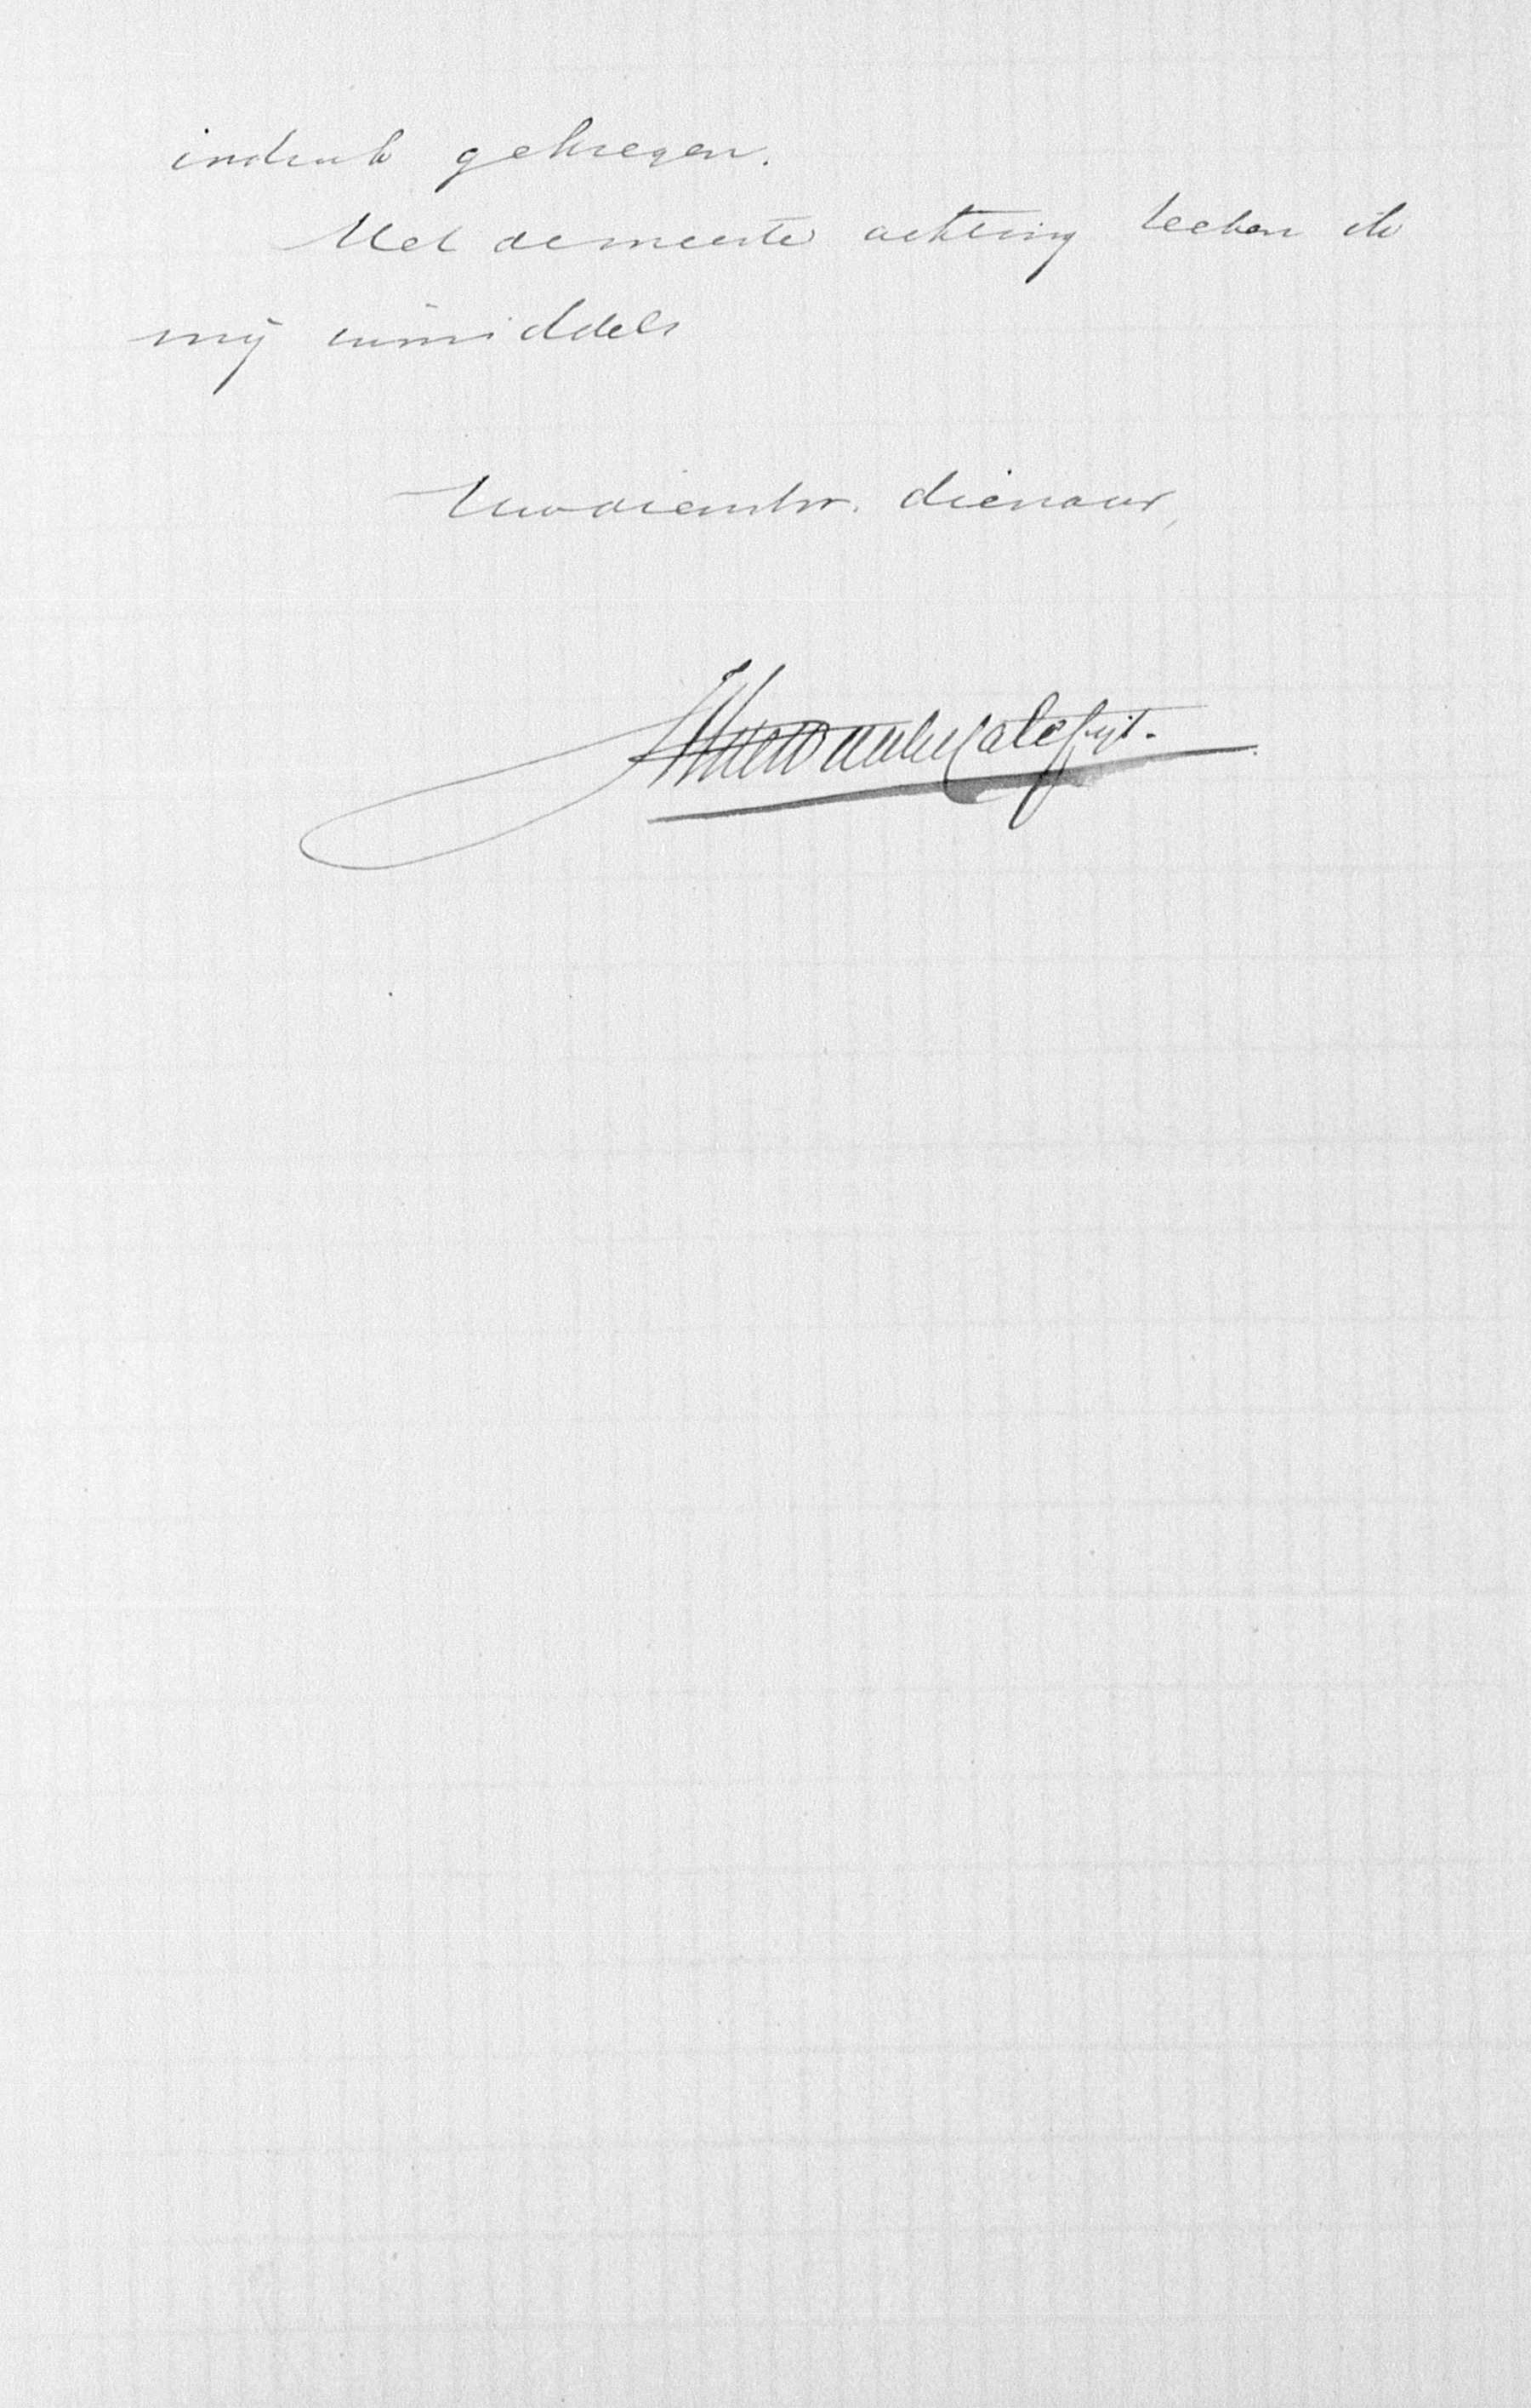 indruk gekregen.
Met de meeste achting teeken ik
mij inmiddels
Uw dienstw. dienaar,